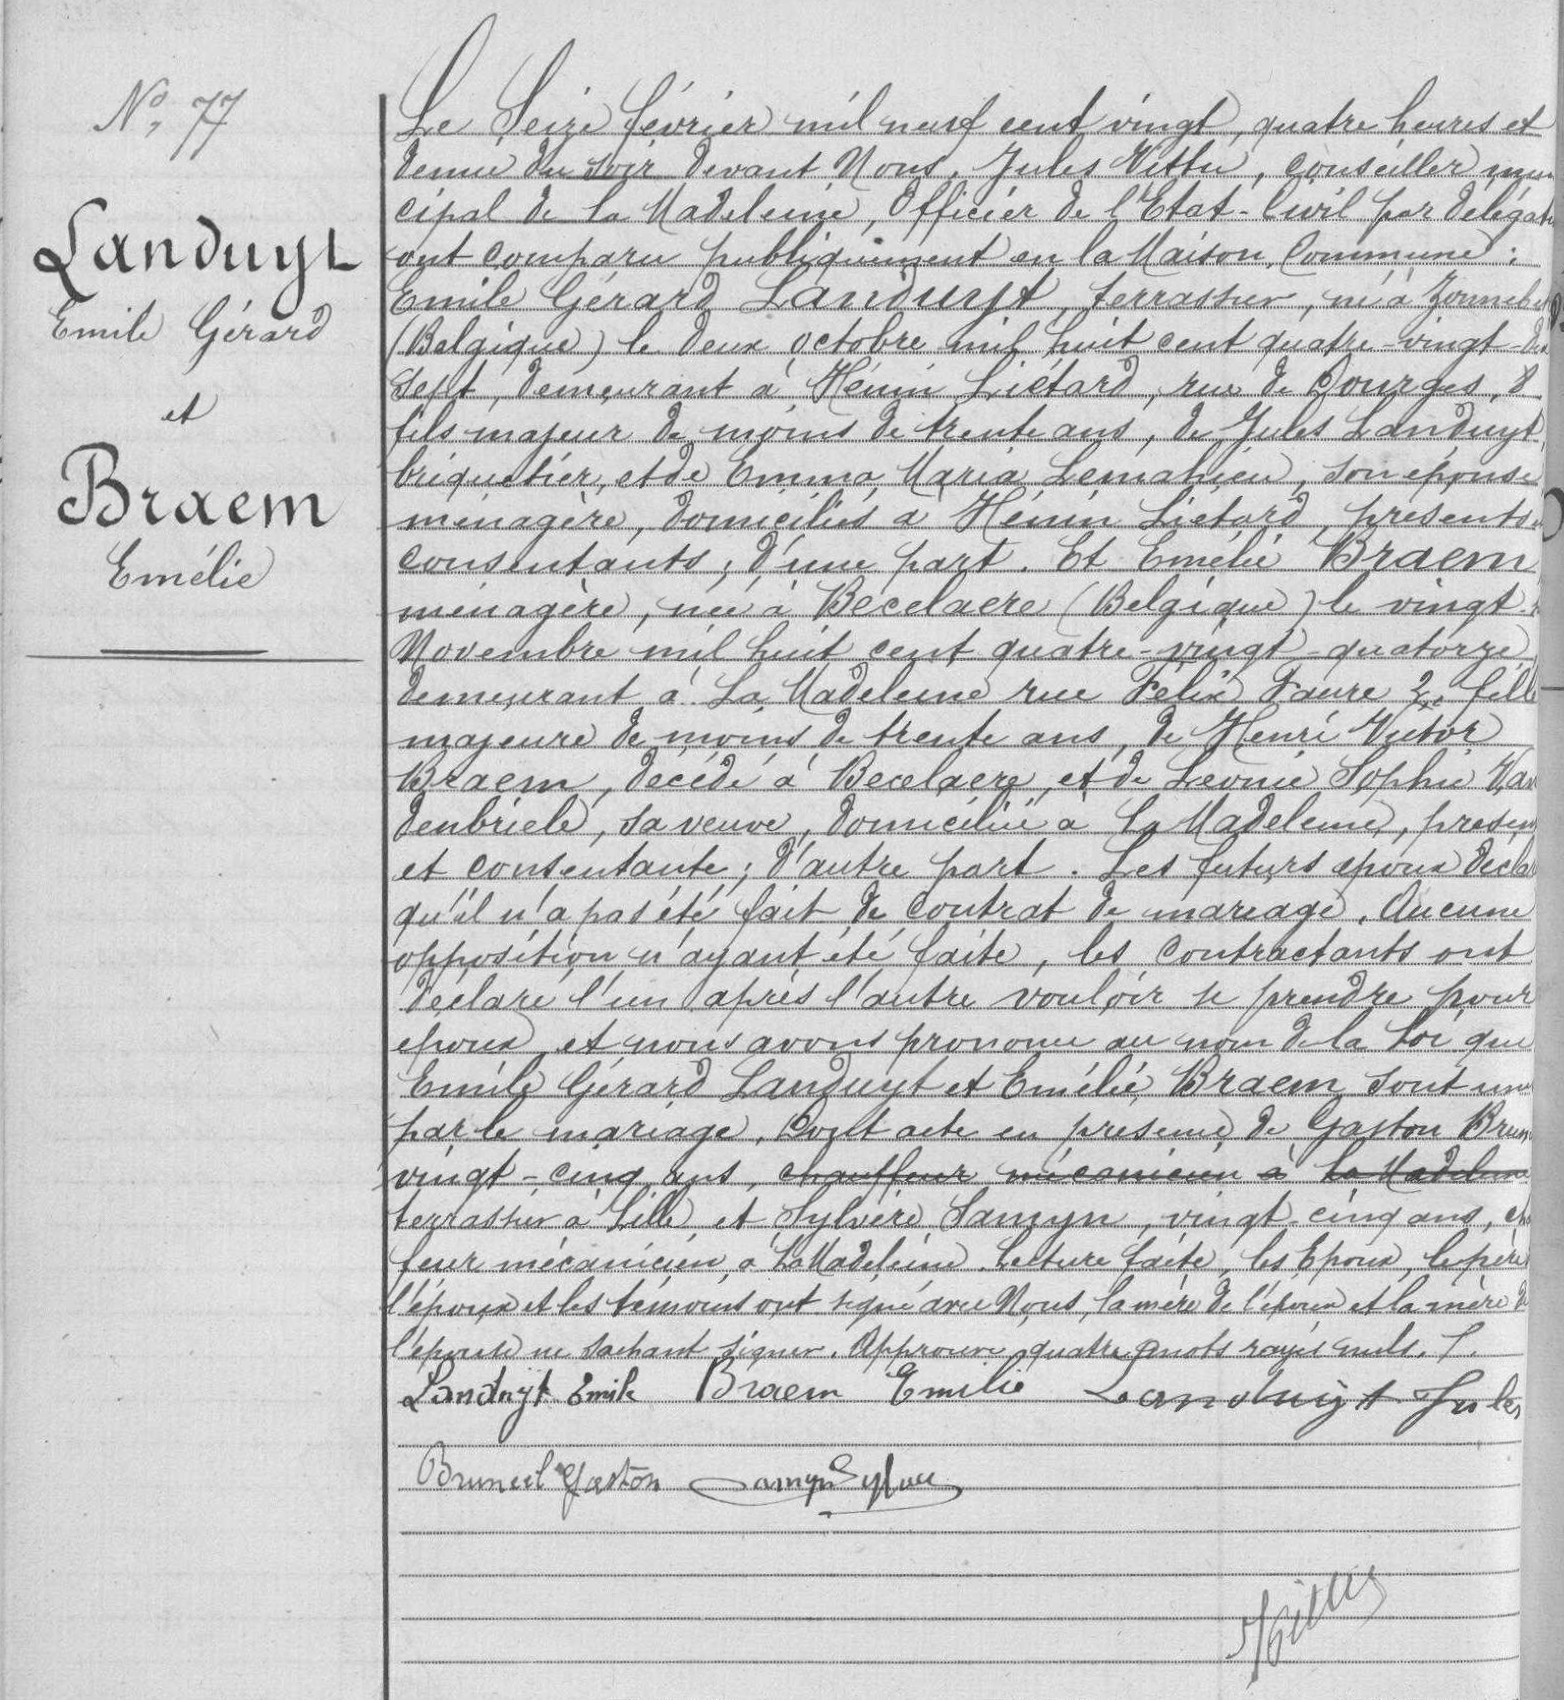 N° 77
Landuyt
Emile Gérard
et
Braem
Emélie
Le Seize février mil neuf cent vingt, quatre heures et
demie du soir devant Nous, Jules Vittu, conseiller muni
cipal de la Madeleine, Officier de l'Etat-Civil par délégati
ont comparu publiquement en la Maison Commune :
Emile Gérard Landuyt, terrassier, né à Zonnebe
(Belgique) le deux octobre mil huit cent quatre-vingt-dix
sept, demeurant à Hénin Liétard, rue de Dourges, 8
fils majeur de moins de trente ans, de Jules Landuyt,
briquetier, et de Emma Maria Lemahieu, son épouse
ménagère, domiciliés à Hénin Liétard, présents
consentants ; d'une part. Et Emélie Braem
ménagère, née à Becelaere (Belgique) le vingt
Novembre mil huit cent quatre-vingt-quatorze
demeurant à La Madeleine rue Félix Faure 2, fille
majeure de moins de trente ans, de Henri Victor
Braem, décédé à Becelaere, et de Leonie Sophie Van
denbriele, sa veuve, domiciliée à la Madeleine, présen
et consentante ; d'autre part. Les futurs époux décla
qu'il n'a pas été fait de contrat de mariage. Aucune
opposition n'ayant été faite, les contractants ont
déclaré l'un après l'autre vouloir se prendre pour
époux et nous avons prononcé au nom de la Loi que
Emile Gérard Landuyt et Emélie Braem sont unis
par le mariage. Dont acte en présence de Gaston Brun
vingt-cinq ans, chauffeur mécanicien à la Madeleine
terrassier à Lille et Sylvère Samyn, vingt-cinq ans, chau
feur mécanicien à La Madeleine. Lecture faite, les Epoux, le père
l'époux et les témoins ont signé avec Nous, la mère de l'époux et la mère de
l'épouse ne sachant signer. Approuvé quatre mots rayés nuls.
Landuyt Emile Braem Emilie Landuyt Jules
Bruneel Gaston Samyn Sylvère
Vittu